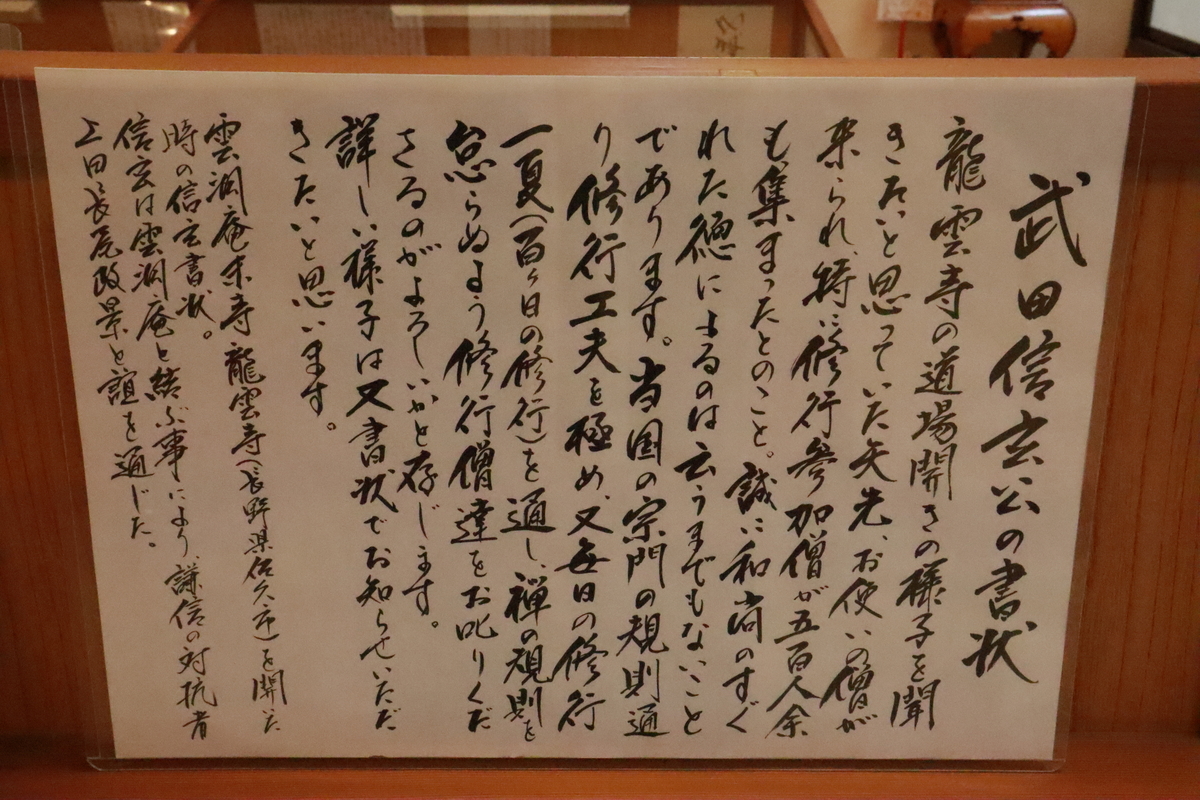 武田信玄公の書状
龍雲寺の道場開きの様子を聞
きたいと思っていた矢先、お使いの僧が
来られ、特に修行参加僧が五百人余
も集まったとのこと。誠に和尚のすぐ
れた徳によるのは云うまでもないこと
であります。当国の宗門の規則通
り修行工夫を極め、又毎日の修行
一夏(百ヶ日の修行)を通し、禅の規則を
怠らぬよう修行僧達をお叱りくだ
さるのがよろしいかと存じます。
詳しい様子は又書状でお知らせいただ
きたいと思います。
雲洞庵末寺龍雲寺(長野県佐久市)を開いた
時の信玄書状。
信玄は雲洞庵と結ぶ事により、謙信の対抗者
上田長尾政景と誼を通じた。